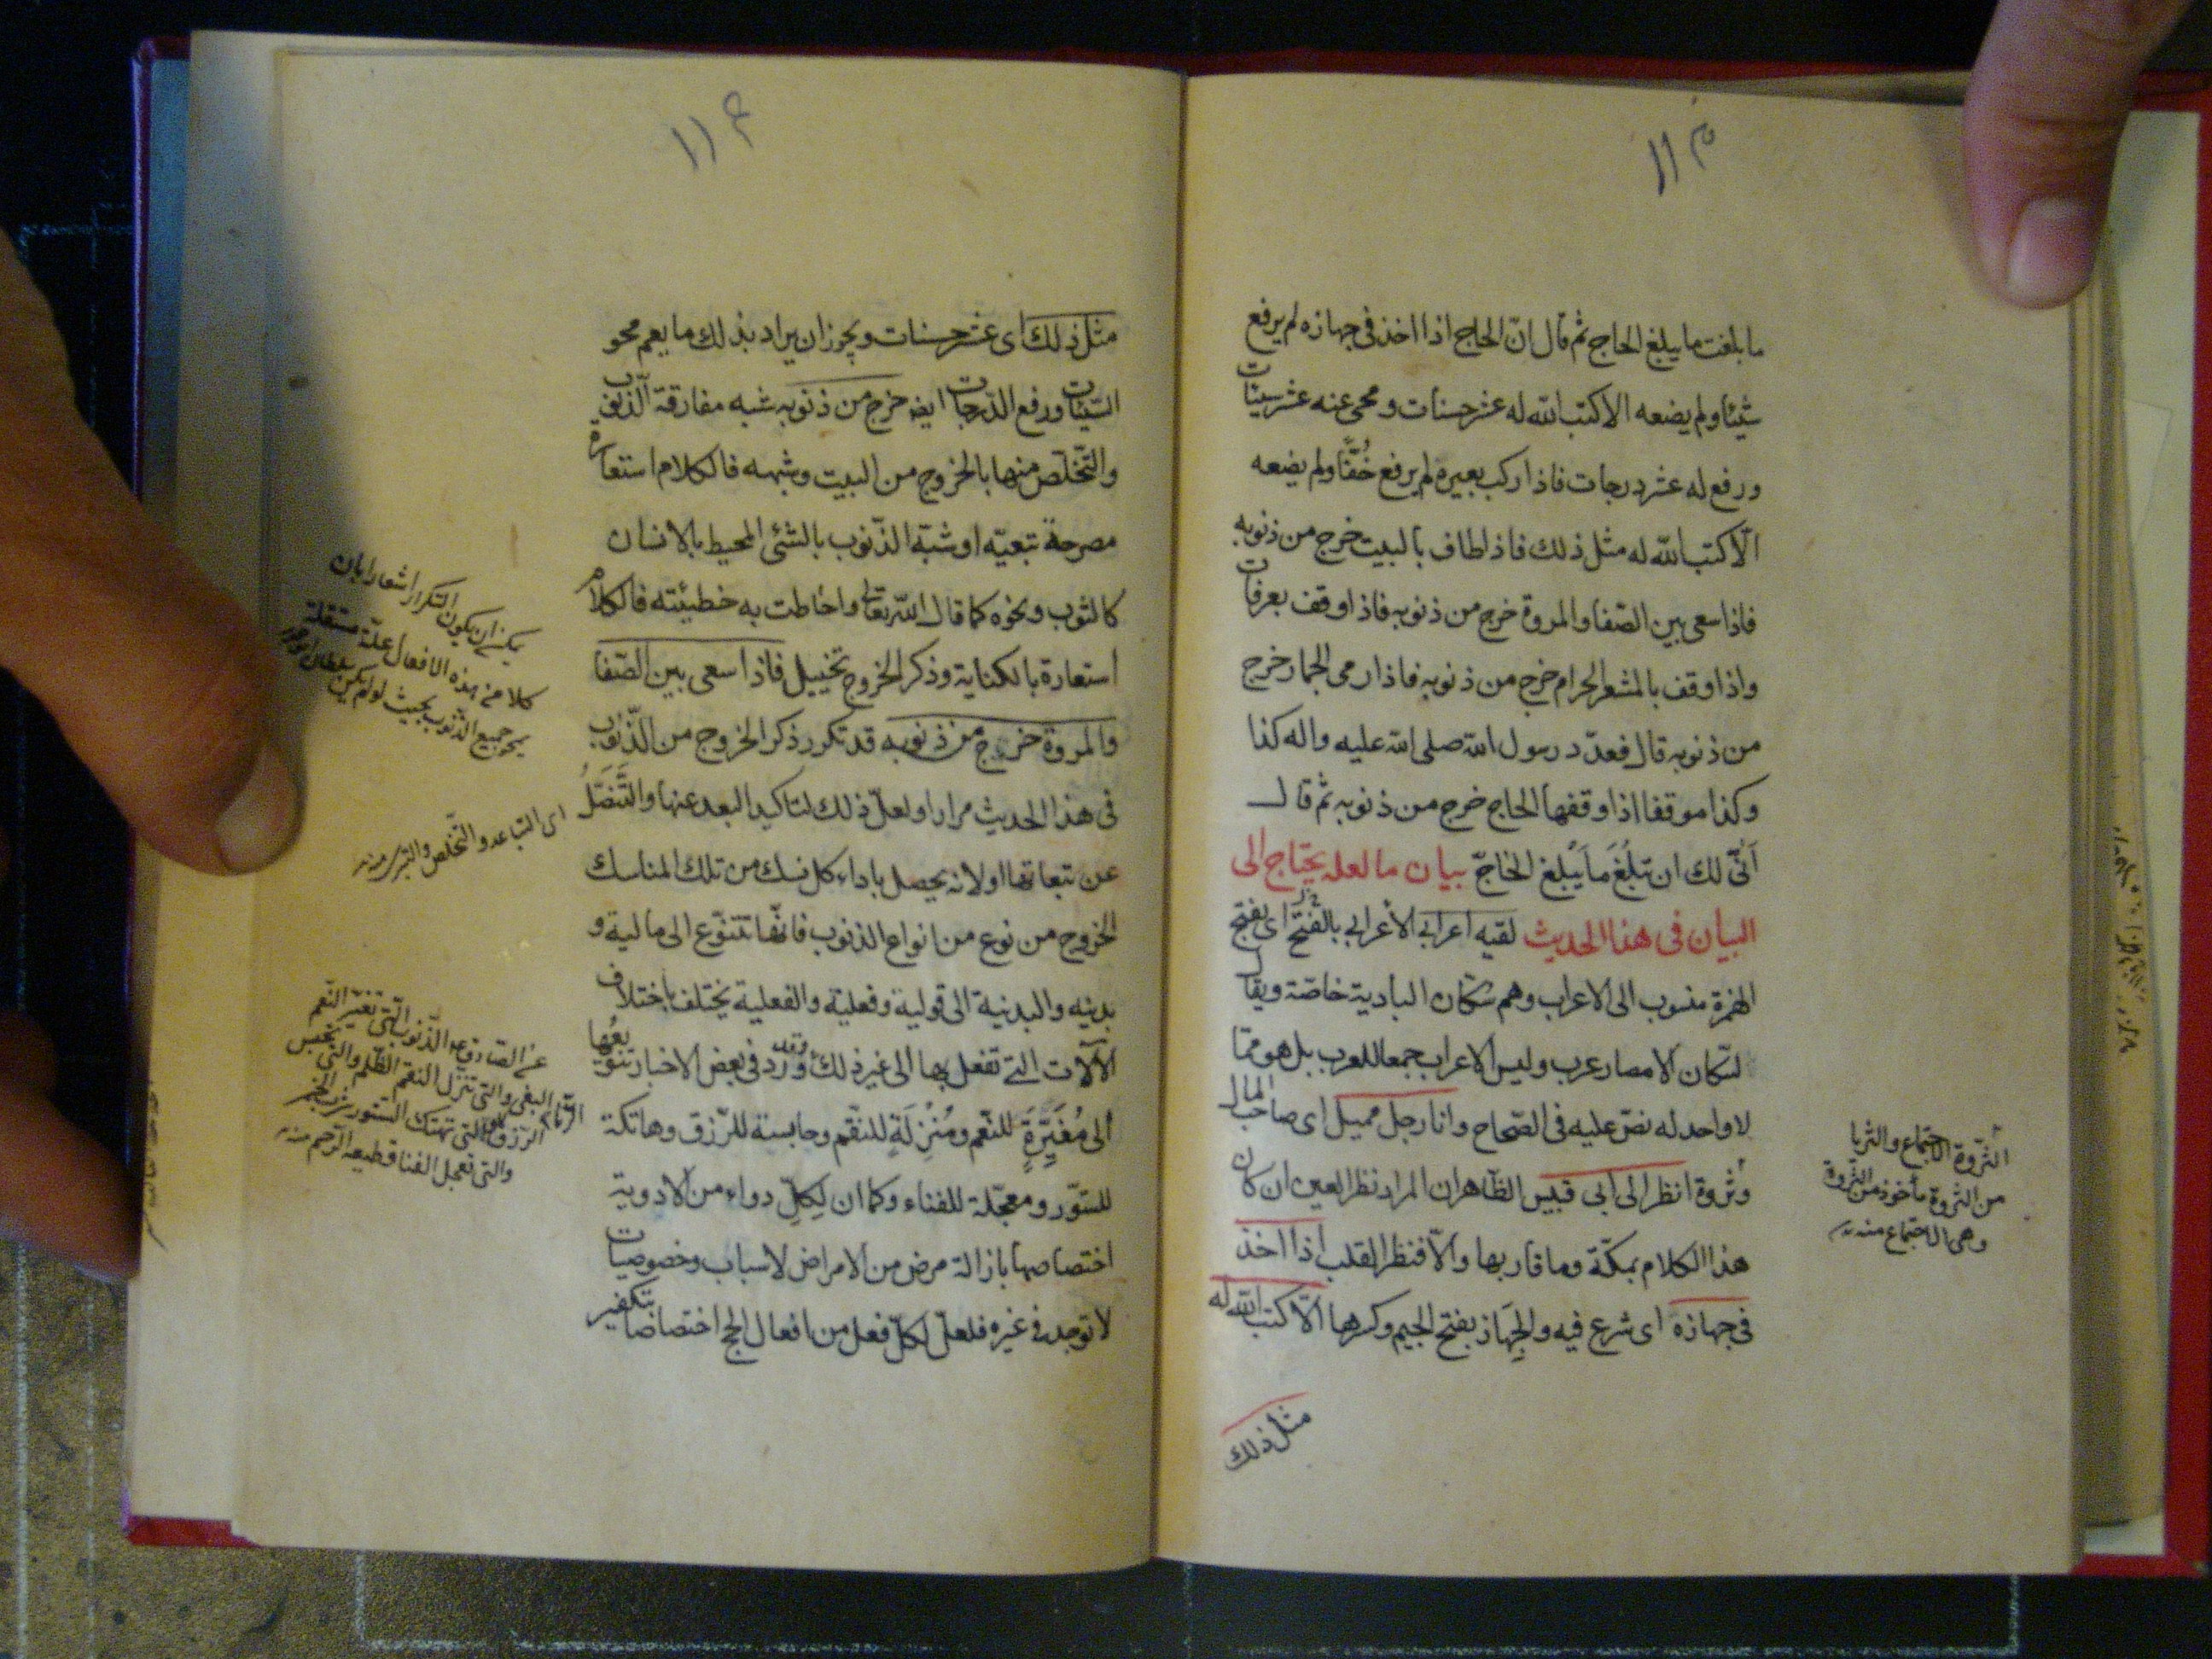 ١١٣
ما بلغت ما يبلغ الحاج ثم قال انّ الحاج اذا اخذ فى جهازه لم يرفع
شيئا ولم يضعه الا كتب الله له عشر حسنات و محى عنه عشر سيئات
ورفع له عشر درجات فاذا ركب بعيره لم يرفع خُفًّا ولم يضعه
الّا كتب الله له مثل ذلك فاذا طاف بالبيت خرج من ذنوبه
فاذا سعى بين الصّفا والمروة خرج من ذنوبه فاذا وقف بعرفات
واذا وقف بالمشعر الحرام خرج من ذنوبه فاذا رمى الجمار خرج
من ذنوبه قال فعدّد رسول الله صلى الله عليه واله كذا
وكذا موقفا اذا وقفها الحاج خرج من ذنوبه ثم قال
اَنّى لك ان تبلُغَ ما يَبلغ الحاجّ بيان ما لعله يحتاج الى
البيان فى هذا الحديث لقيه اعرابى الأعرابى بالفتح اى بفتح
الهمزة منسوب الى الاعراب وهم سكّان البادية خاصّة ويقال
لسكان الامصار عرب وليس الاعراب جمعا للعرب بل هو ممّا
لا واحد له نصّ عليه فى الصّحاح وانا رجل مميل اى صاحب المال
وثروة انظر الى ابى قبيس الظّاهر ان المراد نظر العين ان كان
هذا الكلام بمكّة وما قاربها والّا فنظر القلب اذا اخذ
فى جهازه اى شرع فيه والجِهَاز بفتح الجيم وكسرها الّا كتب الله له
مثل ذلك
الثّروة الاجتماع والثريا
من الثروة مأخوذ من الثّروة
وهى الاجتماع منه
١١٤
مثل ذلك اى عشر حسنات ويجوز ان يراد بذلك ما يعم محو
السّيئات ورفع الدّرجات ايضا خرج من ذنوبه شبه مفارقة الذّنوب
والتّخلّص منها بالخروج من البيت وشبهه فالكلام استعارة
مصرحة تبعيّه او شبّه الذّنوب بالشئى المحيط بالانسان
كالثوب ونحوه كما قال الله تعالى واحاطت به خطيئته فالكلام
استعارة بالكناية وذكر الخروج تخييل فاذا سعى بين الصّفا
والمروة خرج من ذنوبه قد تكرر ذكر الخروج من الذّنوب
فى هذا الحديث مرارا ولعلّ ذلك لتاكيد البعد عنها والتَّنَصُّلُ
عن تبعاتها او لانه يحصل باداء كل نسك من تلك المناسك
الخروج من نوع من انواع الذنوب فانّها تتنوّع الى مالية و
بدنيه والبدنية الى قولية وفعلية والفعلية يختلف باختلاف
الآلات التے تفعل بها الى غير ذلك وقد ورد فى بعض الاخبار تنوّيعُها
الى مُغَيِّرَةٍ للنّعم ومُنْزِلَةٍ للنقم وحابسة للرّزق وهاتكة
للستّور ومعجّلة للفناء وكما ان لِكلِّ دواء من الادوية
اختصاصها بازالة مرض من الامراض لاسباب وخصوصيات
لا توجد فى غيره فلعلّ لكلّ فعل من افعال الحج اختصاصا بتكفير
يمكن ان يكون التكرار اشعارا بان
كلا من هذه الافعال علّة مستقلة
يمحو جميع الذّنوب بحيث لو لم يكن
اى التباعد والتّخلص والتبرّى منه
عن الصّادق الذّنوب الّتى تغيّر النّعم
البغى والتى تنزل النقم الظّلم والتى تحبس
الرّزق الزّنا والتى تهتك الستور شرب الخمر
والتى تعجل الفنا قطيعة الرّحم منه